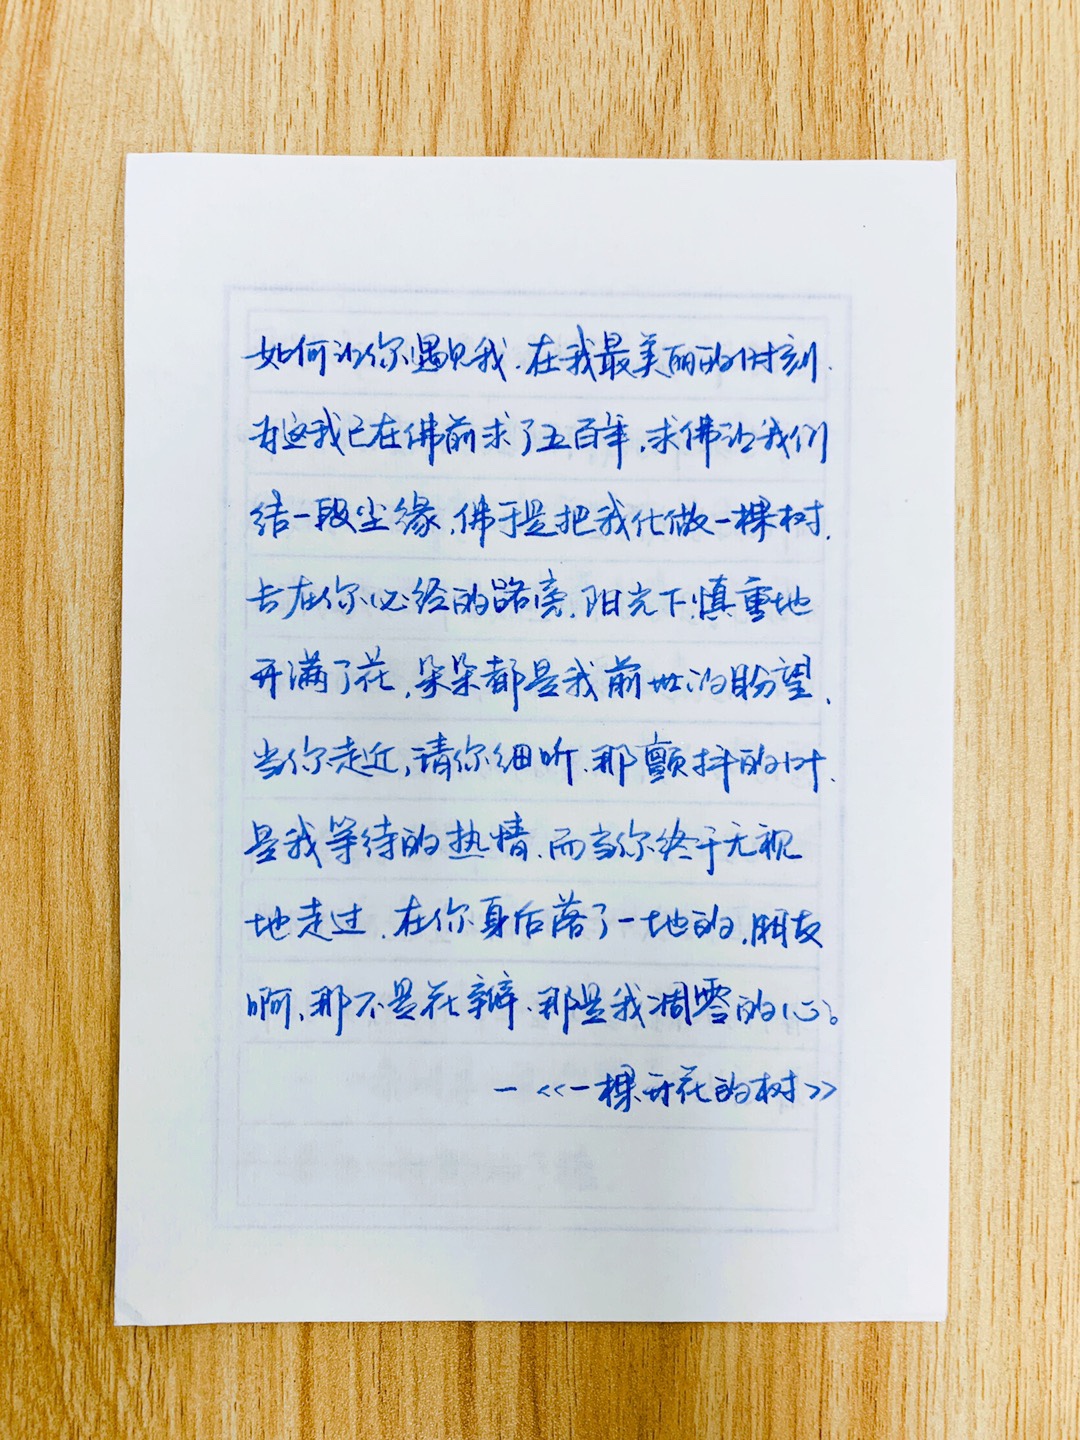 如何让你遇见我.在我最美丽的时刻.
为这我已在佛前求了五百年.求佛让我们
结一段尘缘.佛于是把我化做一棵树.
长在你必经的路旁.阳光下慎重地
开满了花,朵朵都是我前世的盼望.
当你走近,请你细听.那颤抖的叶.
是我等待的热情.而当你终于无视
地走过.在你身后落了一地的.朋友
啊,那不是花瓣.那是我凋零的心。
一<<一棵开花的树>>